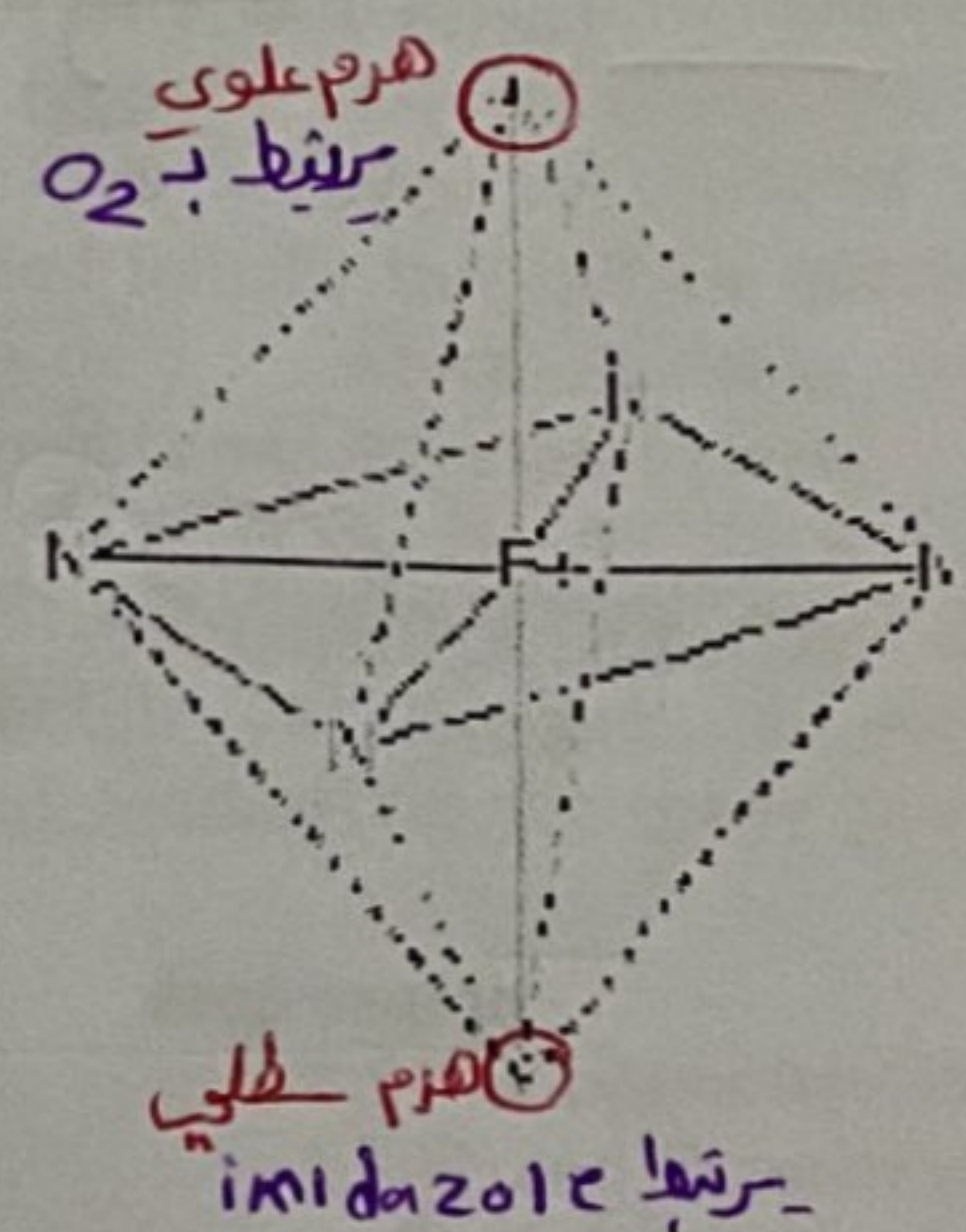 هرم علوي
1
يرتبط بـ O2
N
Fe
N
N
هرم سفلي
2
يرتبط imidazole